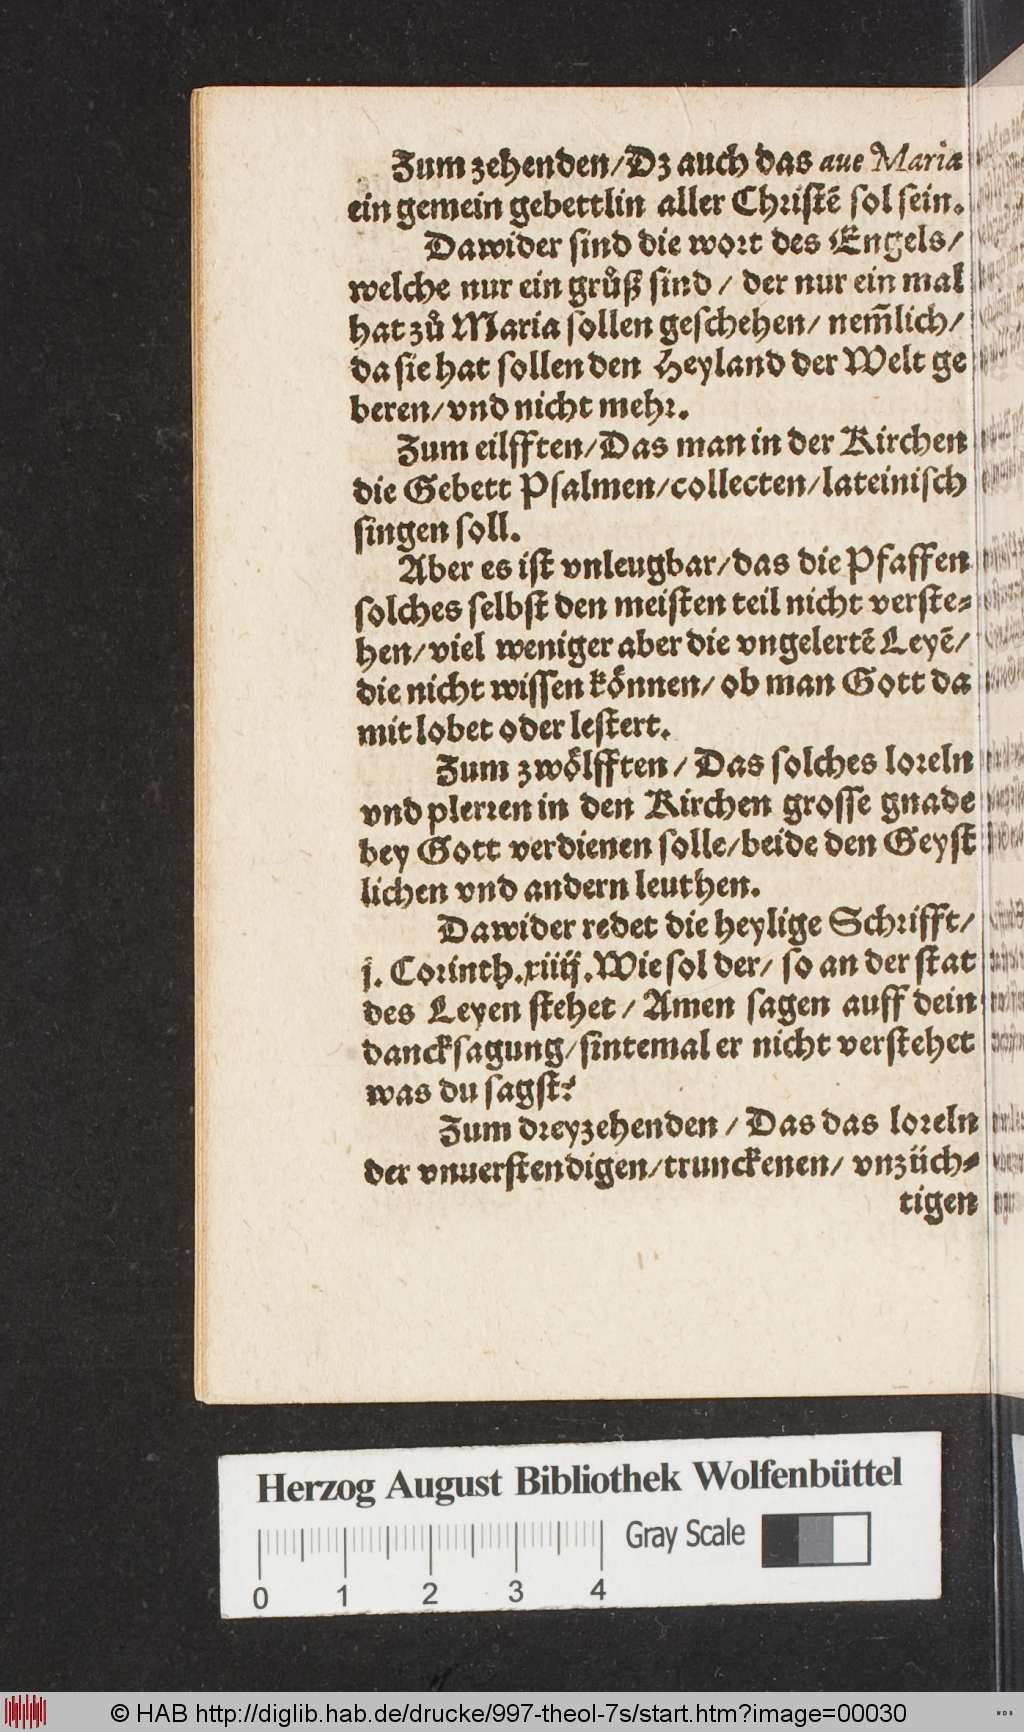 Zum zehenden/Dz auch das aue Maria
ein gemein gebettlin aller Christē sol sein.
Dawider sind die wort des Engels/
welche nur ein grůß sind / der nur ein mal
hat zů Maria sollen geschehen/ nem̄lich/
da sie hat sollen den Heyland der Welt ge
beren/vnd nicht mehr.
Zum eilfften/Das man in der Kirchen
die Gebett Psalmen/collecten/lateinisch
singen soll.
Aber es ist vnleugbar/das die Pfaffen
solches selbst den meisten teil nicht verste-
hen/viel weniger aber die vngelertē Leyē/
die nicht wissen können/ ob man Gott da
mit lobet oder lestert.
Zum zwölfften / Das solches loreln
vnd plerren in den Kirchen grosse gnade
bey Gott verdienen solle/beide den Geyst
lichen vnd andern leuthen.
Dawider redet die heylige Schrifft/
j. Corinth.xiiij.Wie sol der/ so an der stat
des Leyen stehet / Amen sagen auff dein
dancksagung/sintemal er nicht verstehet
was du sagst?
Zum dreyzehenden / Das das loreln
der vnuerstendigen/trunckenen/ vnzüch-
tigen
Herzog August Bibliothek Wolfenbüttel
Gray Scale
0 1 2 3 4
© HAB http://diglib.hab.de/drucke/997-theol-7s/start.htm?image=00030